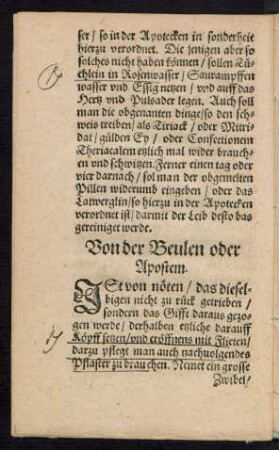 ser / so in der Apotecken in sonderheit
hierzu verordnet. Die jenigen aber so
solches nicht haben können / sollen Tü-
chlein in Rosenwasser / Saurampffen
wasser vnd Essig netzen / vnd auff das
Hertz vnd Pulsader legen. Auch soll
man die obgenanten dinge / so den sch-
weis treiben / als Tiriack / oder Mitri-
dat / gülden Ey / oder Confectionem
Theriacalem etzlich mal wider brauch-
en vnd schwitzen. Ferner einen tag oder
vier darnach / sol man der obgemelten
Pillen widerumb eingeben / oder das
Latwerglin / so hierzu in der Apotecken
verordnet ist / darmit der Leib desto bas
gereiniget werde.
Von der Beulen oder
Apostem.
ISt von nöten / das diesel-
bigen nicht zu rück getrieben /
sondern das Gifft daraus gezo-
gen werde / derhalben etzliche darauff
Köpff setzen / vnd eröffnens mit Flieten /
darzu pflegt man auch nachuolgendes
Pflaster zu brauchen. Nemet ein grosse
Zwibel /